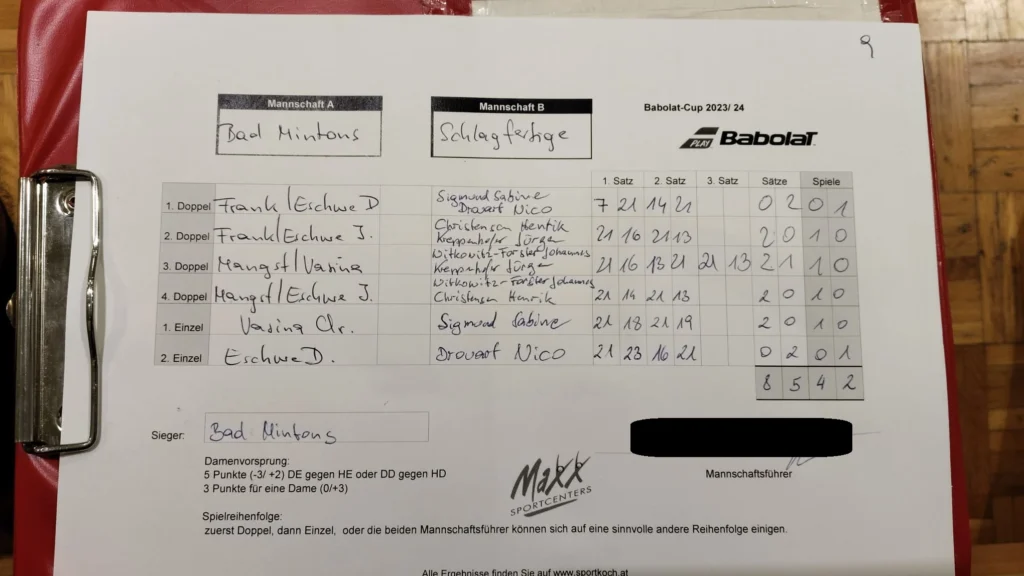 9
Mannschaft A
Bad Mintons
Mannschaft B
Schlagfertige
Babolat-Cup 2023/ 24
PLAY Babolat
1. Satz 2. Satz 3. Satz Sätze Spiele
1. Doppel Frank/Eschwe D Sigmund Sabine Drovart Nico 7 21 14 21 0 2 0 1
2. Doppel Frank/Eschwe J. Christensen Henrik Kreppenhofer Jürgen 21 16 21 13 2 0 1 0
3. Doppel Mangst/Vasina Witkowitz-Forster Johannes Kreppenhofer Jürgen 21 16 13 21 21 13 2 1 1 0
4. Doppel Mangst/Eschwe J. Witkowitz-Forster Johannes Christensen Henrik 21 14 21 13 2 0 1 0
1. Einzel Vasina Chr. Sigmund Sabine 21 18 21 19 2 0 1 0
2. Einzel Eschwe D. Drovart Nico 21 23 16 21 0 2 0 1
8 5 4 2
Sieger: Bad Mintons
Damenvorsprung:
5 Punkte (-3/ +2) DE gegen HE oder DD gegen HD
3 Punkte für eine Dame (0/+3)
MaXX
SPORTCENTERS
Mannschaftsführer
Spielreihenfolge:
zuerst Doppel, dann Einzel, oder die beiden Mannschaftsführer können sich auf eine sinnvolle andere Reihenfolge einigen.
Alle Ergebnisse finden Sie auf www.sportkoch.at